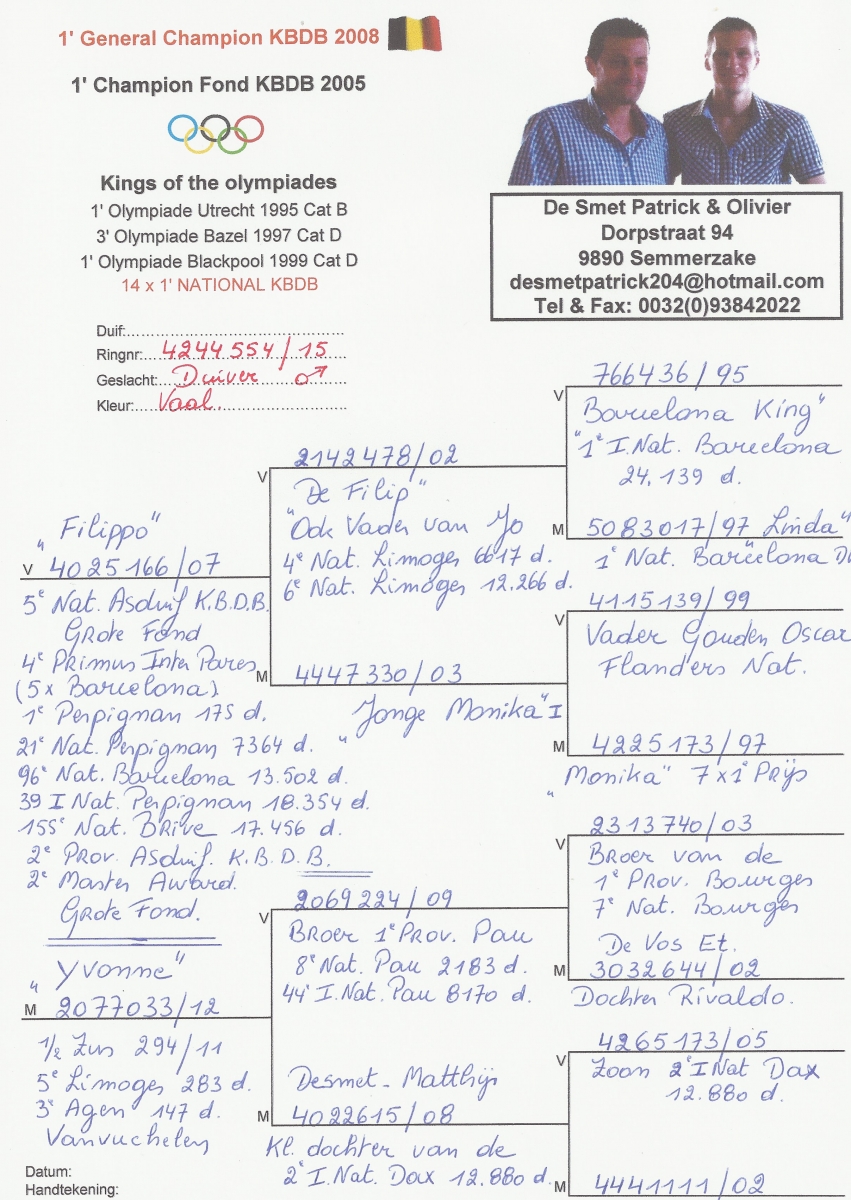 1' General Champion KBDB 2008
1' Champion Fond KBDB 2005
Kings of the olympiades
1' Olympiade Utrecht 1995 Cat B
3' Olympiade Bazel 1997 Cat D
1' Olympiade Blackpool 1999 Cat D
14 x 1' NATIONAL KBDB
De Smet Patrick & Olivier
Dorpstraat 94
9890 Semmerzake
desmetpatrick204@hotmail.com
Tel & Fax: 0032(0)93842022
Duif:
Ringnr: 4244554/15
Geslacht: Duiver ♂
Kleur: Vaal.
"Filippo"
V 4025166/07
5e Nat. Asduif K.B.D.B.
Grote Fond
4e Primus Inter Pares
(5 x Barcelona)
1e Perpignan 175 d.
21e Nat. Perpignan 7364 d.
96e Nat. Barcelona 13.502 d.
39 I Nat. Perpignan 18.354 d.
155e Nat. Brive 17.456 d.
2e Prov. Asduif. K.B.D.B.
2e Master Award.
Grote Fond.
"Yvonne"
M 2077033/12
1/2 Zus 294/11
5e Limoges 283 d.
3e Agen 147 d.
Vanvuchelen
V 2142478/02
"De Filip"
"Ook Vader van Jo
4e Nat. Limoges 6617 d.
6e Nat. Limoges 12.266 d.
M 4447330/03
"Jonge Monika" I
V 2069224/09
Broer 1e Prov. Pau
8e Nat. Pau 2183 d.
44e I.Nat. Pau 8170 d.
Desmet-Matthijs
M 4022615/08
Kl. dochter van de
2e I.Nat. Dax 12.880 d.
V 766436/95
Barcelona King"
"1e I.Nat. Barcelona
24.139 d.
M 5083017/97 Linda"
1e Nat. Barcelona
V 4115139/99
Vader Gouden Oscar
Flanders Nat.
M 4225173/97
"Monika" 7 x 1e Prijs
V 2313740/03
Broer van de
1e Prov. Bourges
7e Nat. Bourges
De Vos Et.
M 3032644/02
Dochter Rivaldo.
V 4265173/05
Zoon 2e I Nat Dax
12.880 d.
M 4441111/02
Datum:
Handtekening: